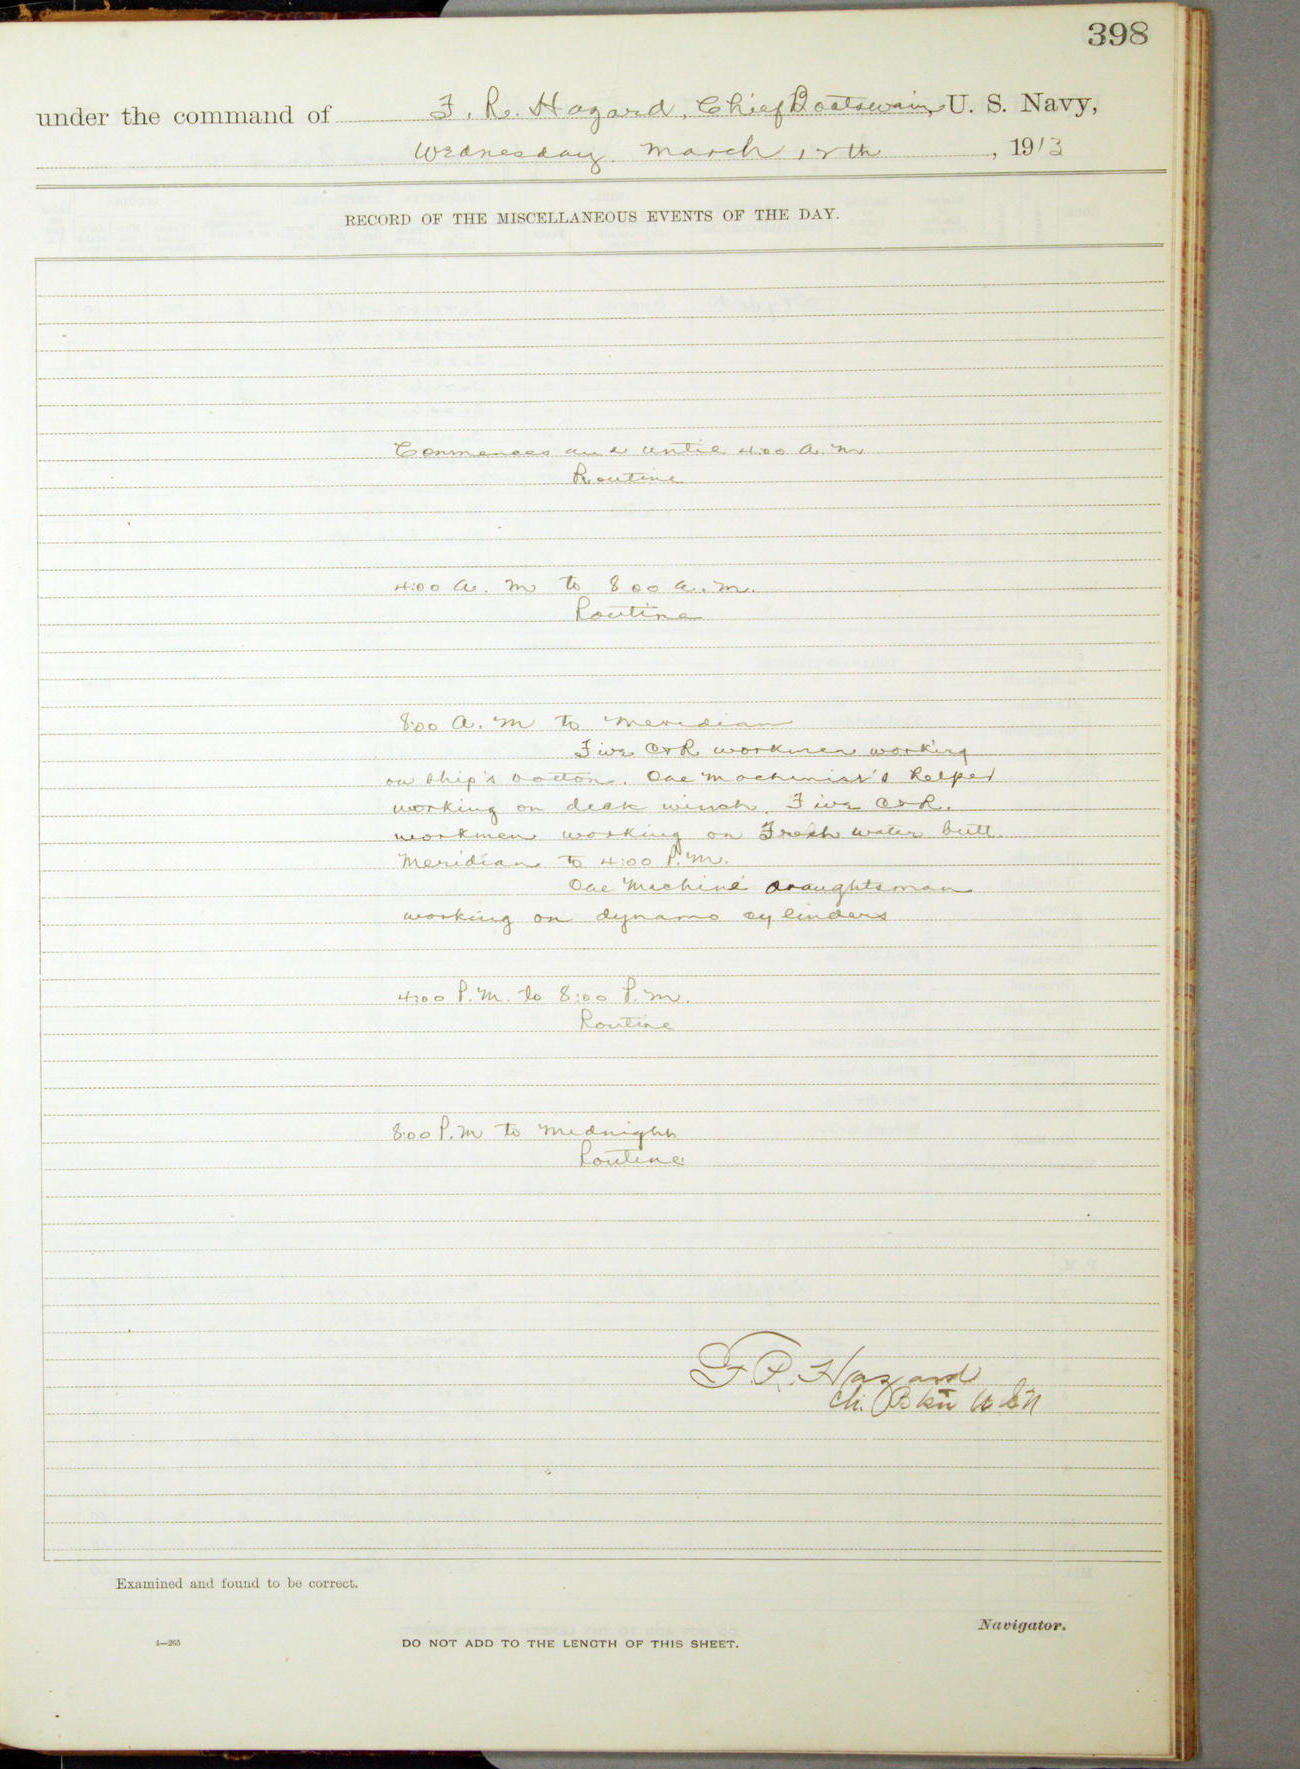 398
under the command of F. R. Hazard, Chief Boatswain, U. S. Navy,
Wednesday March 12th, 1913
RECORD OF THE MISCELLANEOUS EVENTS OF THE DAY.
Commences and until 4:00 A. M
Routine
4:00 A. M to 8 00 A. M.
Routine
8:00 A. M to Meridian
Five C&R workmen working
on ship's bottom. One Machinist's helper
working on deck winch. Five C&R.
workmen working on Fresh water butt
Meridian to 4:00 P.M.
One Machine draughtsman
working on dynamo cylinders
4:00 P.M. to 8:00 P.M.
Routine
8:00 P.M to Midnight
Routine
F. R. Hazard
Ch. Btsn USN
Examined and found to be correct.
Navigator.
1—265
DO NOT ADD TO THE LENGTH OF THIS SHEET.